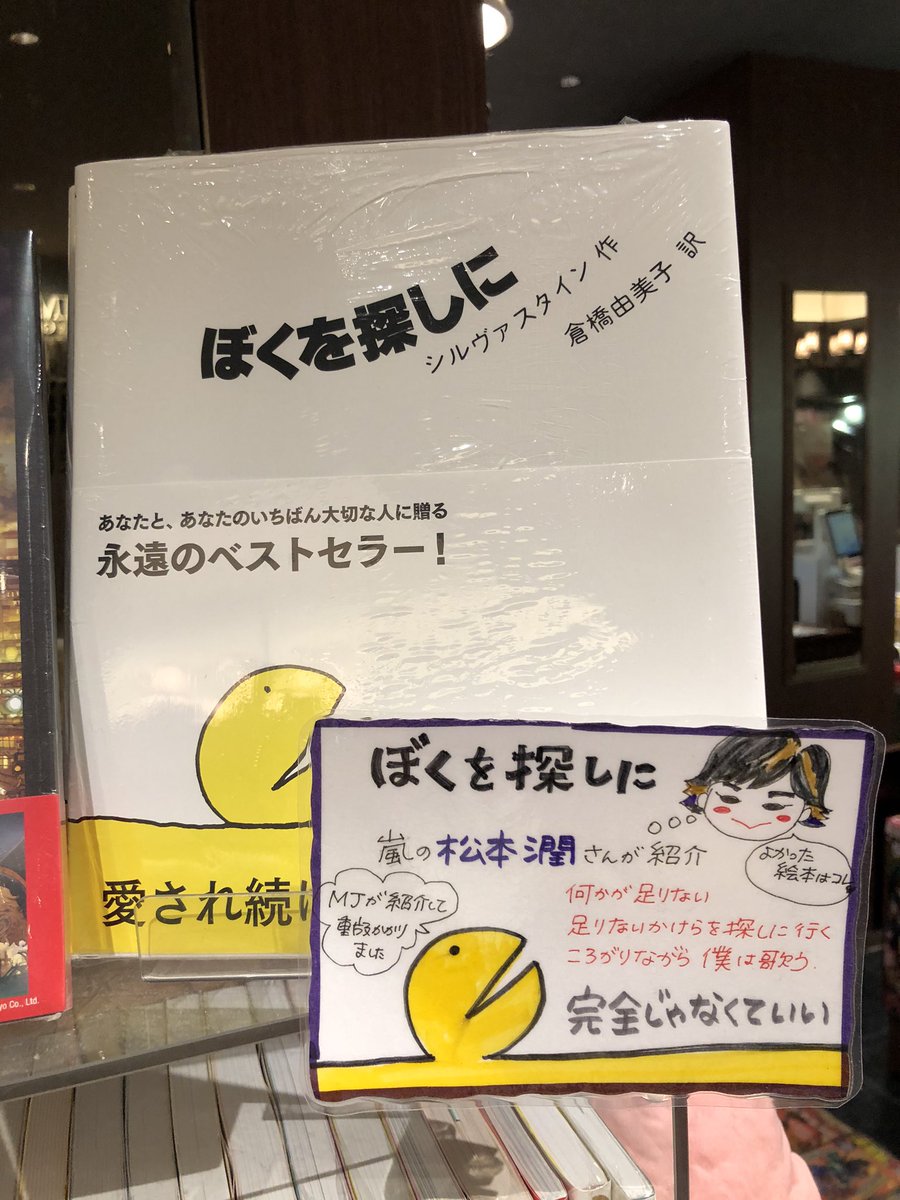 ぼくを探しに
シルヴァスタイン 作
倉橋由美子 訳
あなたと、あなたのいちばん大切な人に贈る
永遠のベストセラー!
愛され続け
ぼくを探しに
嵐の松本潤さんが紹介
よかった
絵本はコレ
MJが紹介して
重版かかり
ました
何かが足りない
足りないかけらを探しに行く
ころがりながら 僕は歌う.
完全じゃなくていい
yo Co., Ltd.